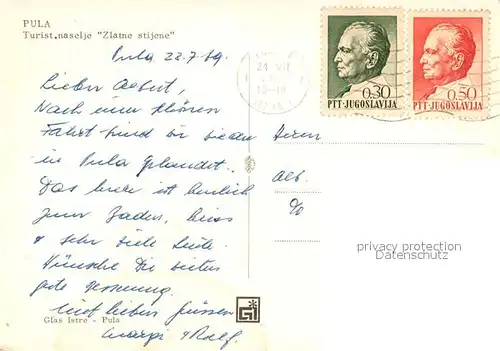 PULA
Turist.naselje "Zlatne stijene"
Pula 22.7.69.
Lieber Albert,
Nach einer schönen
Fahrt sind wir wieder
in Pula gelandet.
Das Meer ist herrlich
zum Baden, heiss
& sehr viele Leute.
Wünsche Dir weiter
gute
mit lieben Grüssen
& Rolf.
Glas Istre - Pula
0.30
PTT-JUGOSLAVIJA
0.50
PTT-JUGOSLAVIJA
Herrn
Alb.
privacy protection
Datenschutz